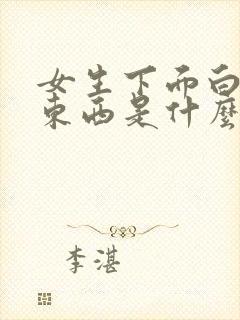 女生下而白
东西是什麼
李湛